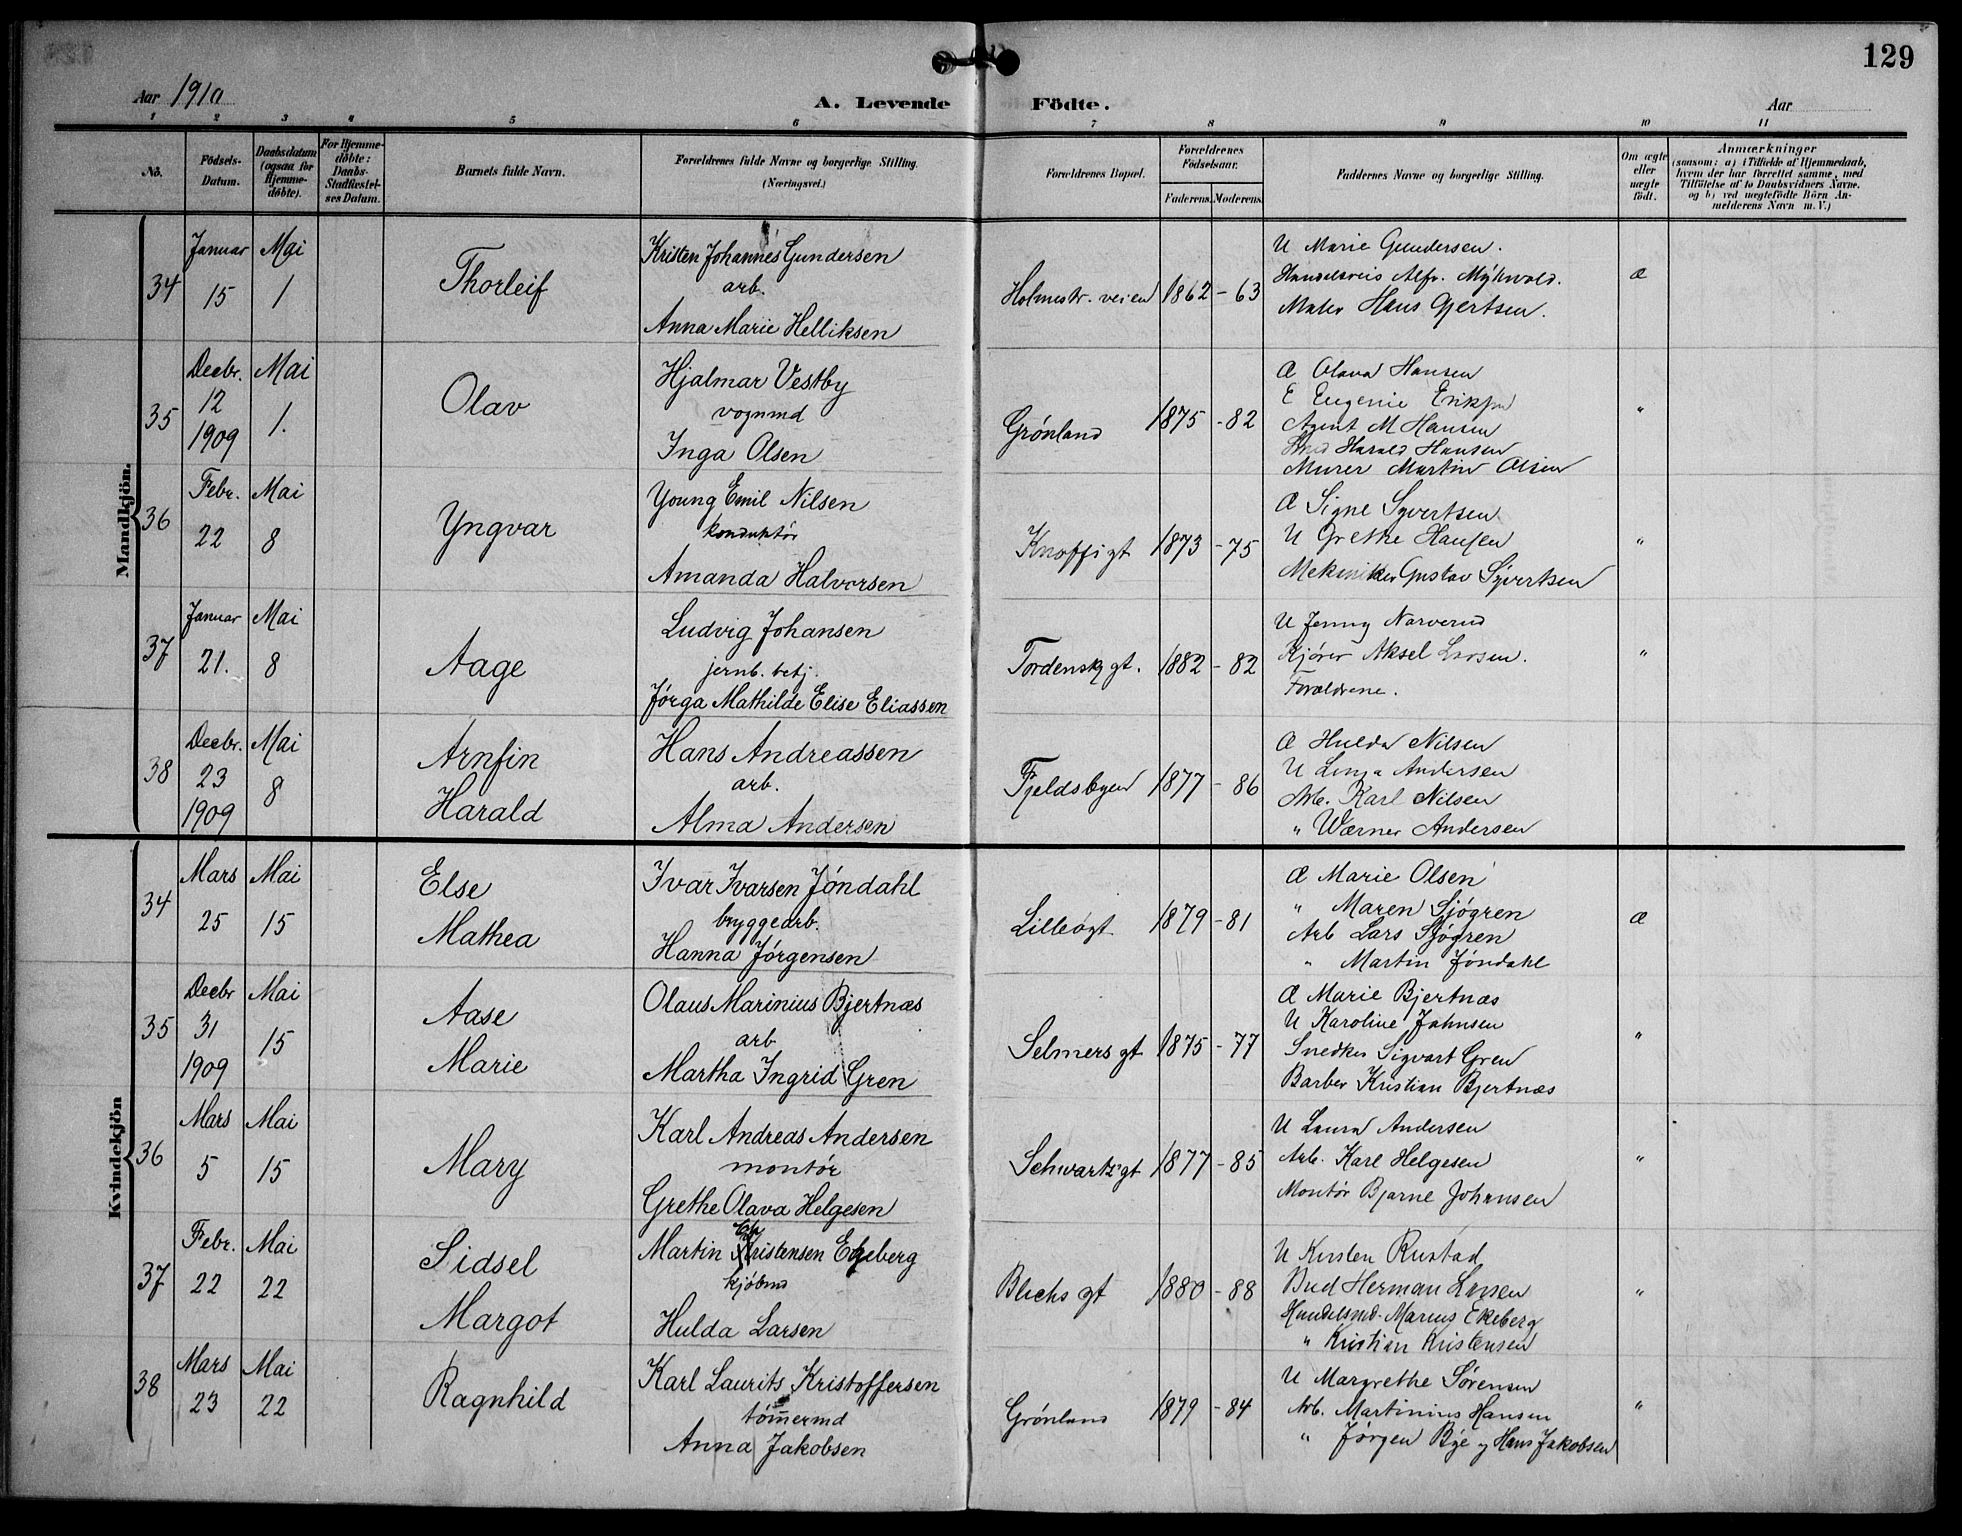 129
Aar 1910
A. Levende Födte.
Aar
1 2 3 4 5 6 7 8 9 10 11
No.
Födsels-Datum.
Daabsdatum (ogsaa for Hjemme-döbte).
For Hjemme-döbte: Daabs-Stadfæstel-ses Datum.
Barnets fulde Navn.
Forældrenes fulde Navne og borgerlige Stilling.
(Næringsvei.)
Forældrenes Bopæl.
Forældrenes Födselsaar.
Faderens. Moderens.
Faddernes Navne og borgerlige Stilling.
Om ægte eller uægte født.
Anmærkninger
(saasom: a) i Tilfælde af Hjemmedaab,
hvem der har forrettet samme, med
Tilföielse af to Daabsvidners Navne,
og b) ved uægtefödte Börn An-
melderens Navn m. V.)
Mandkjön.
34 Januar 15 Mai 1 Thorleif
Kristen Johannes Gundersen
arb.
Anna Marie Helliksen
Holmestr. veien 1862 - 63
U Marie Gundersen.
Handelsreis Alfr. Mykvold.
Maler Hans Gjertsen.
æ
35 Decbr. 12 1909 Mai 1. Olav
Hjalmar Vestby
vognmd
Inga Olsen
Grönland 1875 - 82
Æ Olava Hansen
E Eugenie Eriksen
Agent M Hansen
Smed Harald Hansen
Murer Martin Olsen
"
36 Febr. 22 Mai 8 Yngvar
Young Emil Nilsen
konduktör
Amanda Halvorsen
Knoffs gt 1873 - 75
Æ Signe Syvertsen
U Grethe Hansen
Mekaniker Gustav Syvertsen
"
37 Januar 21. Mai 8 Aage
Ludvig Johansen
jernb. betj.
Jørga Mathilde Elise Eliassen
Tordensk gt. 1882 - 82
U Jenny Narverud
Kjörer Aksel Larsen.
Forældrene.
"
38 Decbr. 23 1909 Mai 8 Arnfin Harald
Hans Andreassen
arb.
Alma Andersen
Fjeldsbyen 1877 - 86
Æ Hulda Nilsen
U Andersen
Arb. Karl Nilsen
" Wærner Andersen
Kvindekjön
34 Mars 25 Mai 15 Else Mathea
Ivar Ivarsen Jöndahl
bryggearb.
Hanna Jørgensen
Lilleögt 1879 - 81
Æ Marie Olsen
" Maren Sjögren
Arb Lars Sjögren
" Martin Jöndahl
æ
35 Decbr 31 1909 Mai 15 Aase Marie
Olaus Marinius Bjertnæs
arb
Martha Ingrid Gren
Selmers gt 1875 - 77
Æ Marie Bjertnæs
U Karoline Johnsen
Snedker Sigvart Gren
Barber Kristian Bjertnæs
"
36 Mars 5 Mai 15 Mary
Karl Andreas Andersen
montör
Grethe Olava Helgesen
Schwartz gt 1877 - 85
U Laura Andersen
Arb. Karl Helgesen
Montör Bjarne Johansen
"
37 Febr. 22 Mai 22 Sidsel Margot
Martin Kristensen Ekeberg
kjöbmd
Hulda Larsen
Blichs gt 1880 - 88
U Kirsten Rustad
Bud Herman Larsen
Handelsmd. Marius Ekeberg
" Kristian Kristensen
"
38 Mars 23 Mai 22 Ragnhild
Karl Laurits Kristoffersen
tömmermd
Anna Jakobsen
Grönland 1879 - 84
U Margrethe Sörensen
Arb. Martinius Hansen
" Jørgen Bye og Hans Jakobsen
"